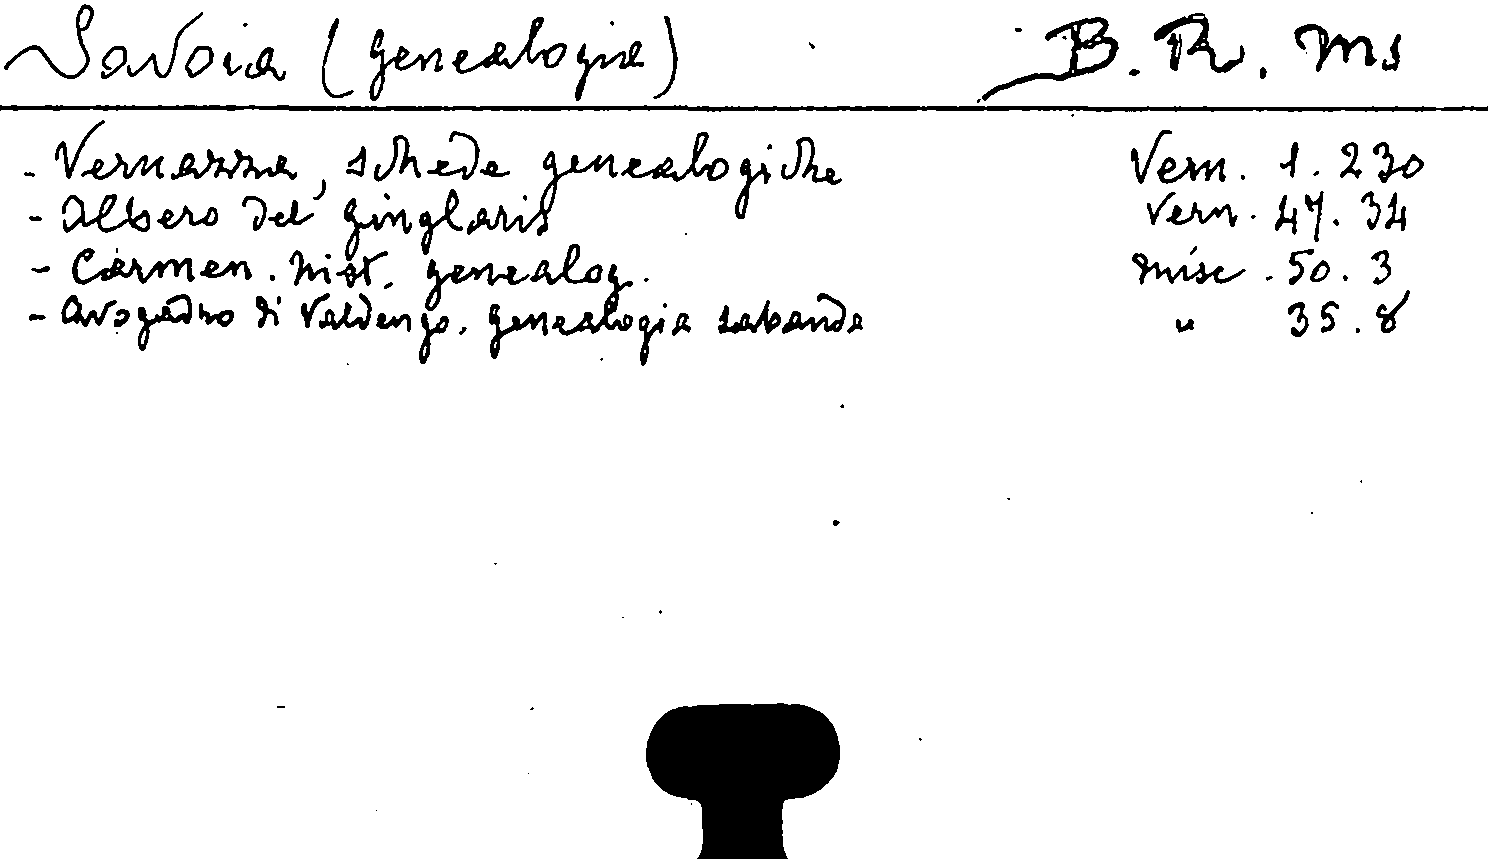 Savoia (genealogia) B. R. Ms
- Vernazza, schede genealogiche Vern. 1. 230
- Albero del Ginglaris Vern. 47. 34
- Carmen. hist. genealog. Misc. 50. 3
- Avogadro di Valdengo. genealogia sabauda " 35. 8